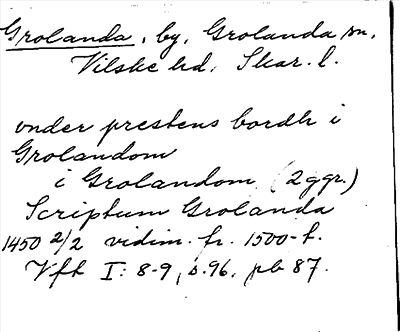 Grolanda, by, Grolanda sn,
Vilske hd, Skar. l.
vnder prestens bordh i
Grolandom
i Grolandom (2 ggr.)
Scriptum Grolanda
1450 2/2 vidim. fr. 1500-t.
Vft I: 8-9, s. 96, pb 87.